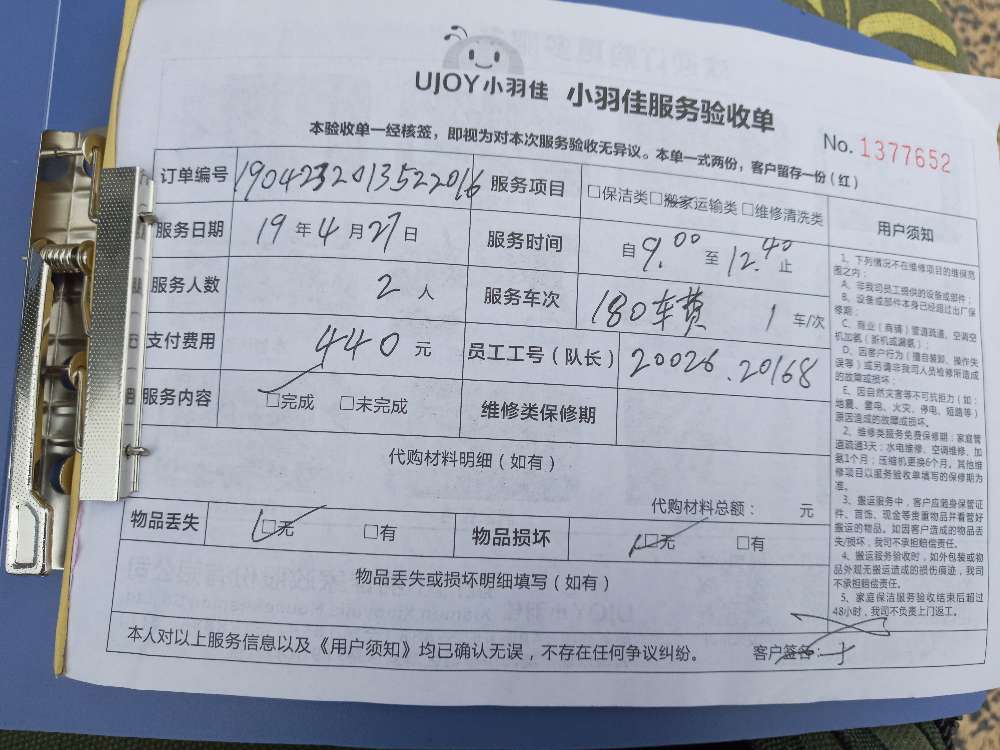 UJOY小羽佳 小羽佳服务验收单
No. 1377652
本验收单一经核签，即视为对本次服务验收无异议。本单一式两份，客户留存一份（红）
订单编号 1904232013522016 服务项目 □保洁类□搬家运输类□维修清洗类
服务日期 19年4月27日 服务时间 自9.00至12.40止
服务人数 2人 服务车次 180车费 1车/次
支付费用 440元 员工工号（队长） 20026.20168
服务内容 □完成 □未完成 维修类保修期
代购材料明细（如有）
代购材料总额： 元
物品丢失 □无 □有 物品损坏 □无 □有
物品丢失或损坏明细填写（如有）
本人对以上服务信息以及《用户须知》均已确认无误，不存在任何争议纠纷。 客户签名：
用户须知
1、下列情况不在维修项目的维保范
围之内：
A、非我司员工提供的设备或部件；
B、设备或部件本身已经超过出厂保
修期；
C、商业（商铺）管道疏通、空调空
机加氨（拆机或漏氨）；
D、因客户行为（擅自装卸、操作失
误等）或另请非我司人员检修所造成
的故障或损坏；
E、因自然灾害等不可抗拒力（如：
地震、雷电、火灾、停电、短路等）
原因造成的故障或损坏。
2、维修类服务免费保修期：家庭管
道疏通3天；水电维修、空调维修、加
氨1个月；压缩机更换6个月。其他维
修项目以服务验收单填写的保修期为
准。
3、搬运服务中，客户应随身保管证
件、首饰、现金等贵重物品并看管好
搬运的物品。如因客户造成的物品丢
失/损坏，我司不承担赔偿责任。
4、搬运服务验收时，如外包装或物
品外观无搬运造成的损伤痕迹，我司
不承担赔偿责任。
5、家庭保洁服务验收结束后超过
48小时，我司不负责上门返工。